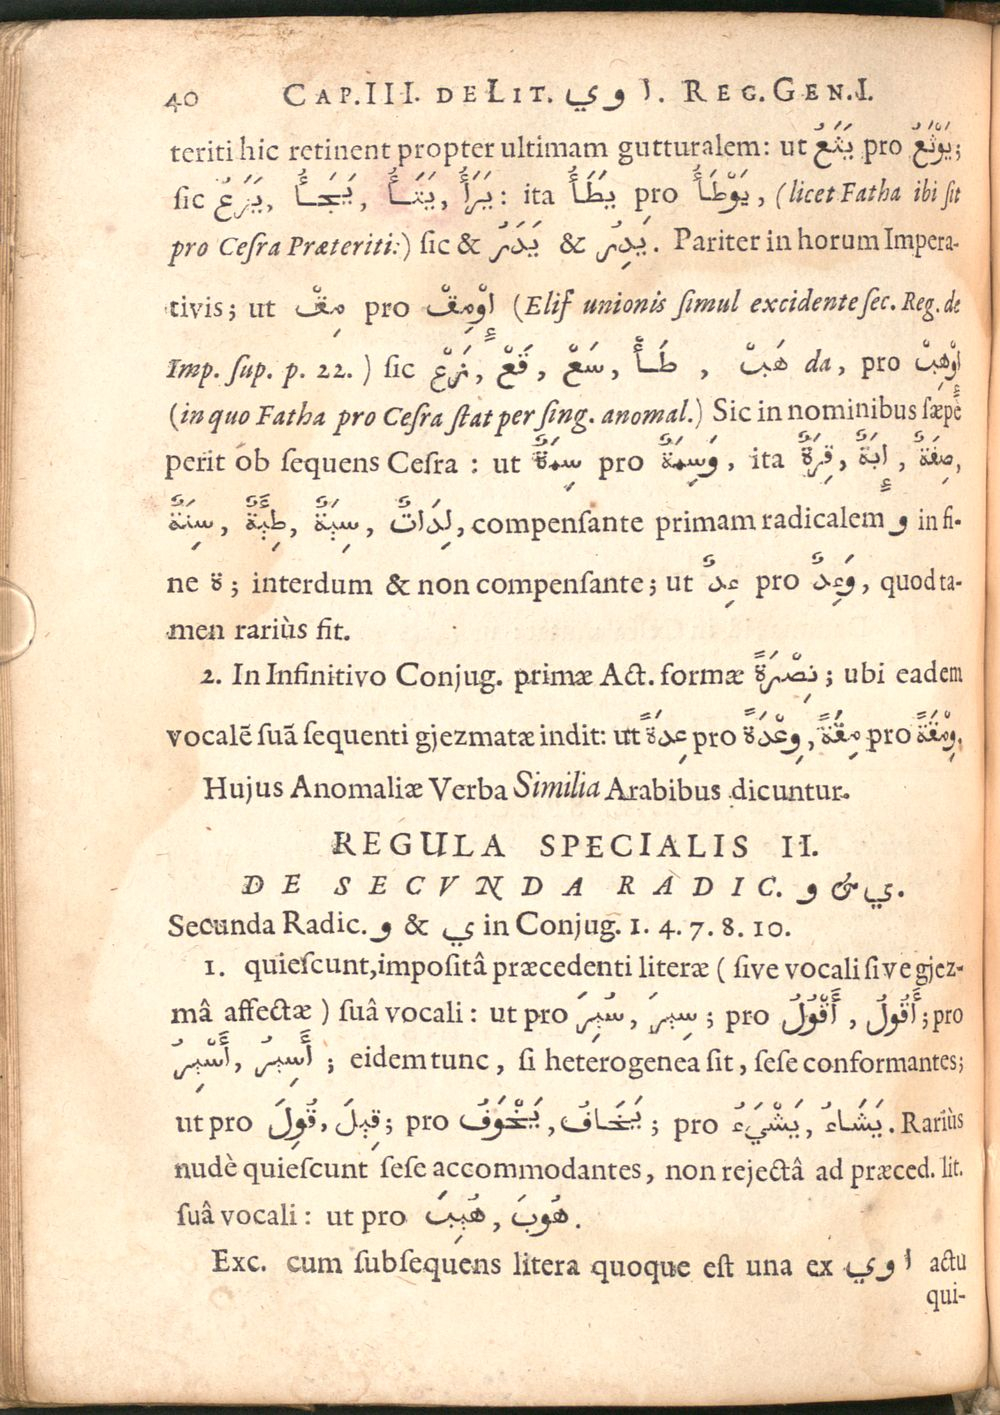 40 CAP.III. DE LIT. اوي. REG.GEN.I.
teriti hic retinent propter ultimam gutturalem: ut يَثَعُ pro يَوْثَعُ;
sic يَزَعُ, يَجَأُ, يَتَأُ, يَرَأُ: ita يَطَأُ pro يَوْطَأُ, (licet Fatha ibi ſit
pro Ceſra Præteriti:) ſic & يَدَرُ & يَدِرُ. Pariter in horum Impera-
tivis; ut مِقْ pro اِوْمِقْ (Elif unionis ſimul excidente ſec. Reg. de
Imp. ſup. p. 22.) ſic زَعْ, قَعْ, سَعْ, طَأْ, هَبْ da, pro اِوْهِبْ
(in quo Fatha pro Ceſra ſtat per ſing. anomal.) Sic in nominibus ſæpè
perit ob ſequens Ceſra: ut سِمَةٌ pro وَسِمَةٌ, ita قِرَةٌ, إِبَةٌ, صِفَةٌ,
سِنَةٌ, طِيَةٌ, سِيَةٌ, لِدَاتٌ, compenſante primam radicalem و in fi-
ne ة; interdum & non compenſante; ut عِدٌ pro وَعِدٌ, quod ta-
men rariùs fit.
2. In Infinitivo Conjug. primæ Act. formæ نِصْرَةً; ubi eadem
vocalē ſuā ſequenti gjezmatæ indit: ut عِدَةً pro وِعْدَةً, مِقَةً pro وِمْقَةً.
Hujus Anomaliæ Verba Similia Arabibus dicuntur.
REGULA SPECIALIS II.
DE SECVNDA RADIC. و & ي.
Secunda Radic. و & ي in Conjug. 1. 4. 7. 8. 10.
1. quieſcunt, impoſitâ præcedenti literæ (ſive vocali ſive gjez-
mâ affectæ) ſuâ vocali: ut pro سُيِرَ, سِيرَ; pro أَقْوُلُ, أَقُولُ; pro
أَسْيِرُ, أَسِيرُ; eidem tunc, ſi heterogenea ſit, ſeſe conformantes;
ut pro قُوِلَ, قِيلَ; pro يَخْوَفُ, يَخَافُ; pro يَشْيَءُ, يَشَاءُ. Rariùs
nudè quieſcunt ſeſe accommodantes, non rejectâ ad præced. lit.
ſuâ vocali: ut pro هُيِبَ, هُوبَ.
Exc. cum ſubſequens litera quoque eſt una ex اوي actu
qui-